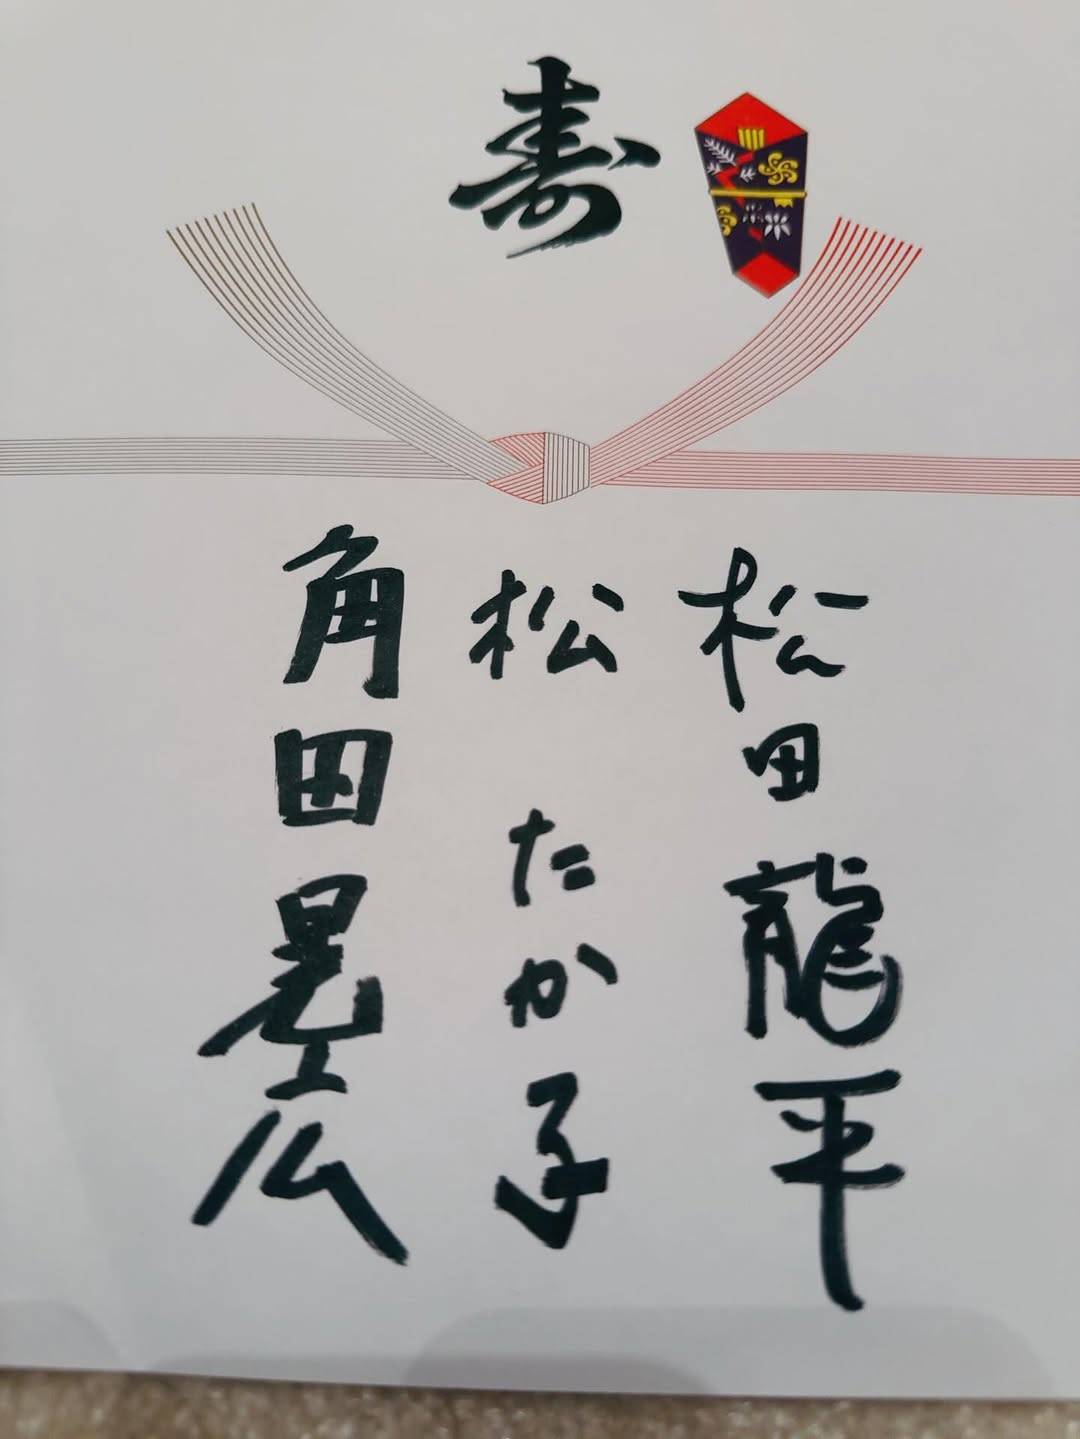 寿
松田龍平
松たか子
角田晃広